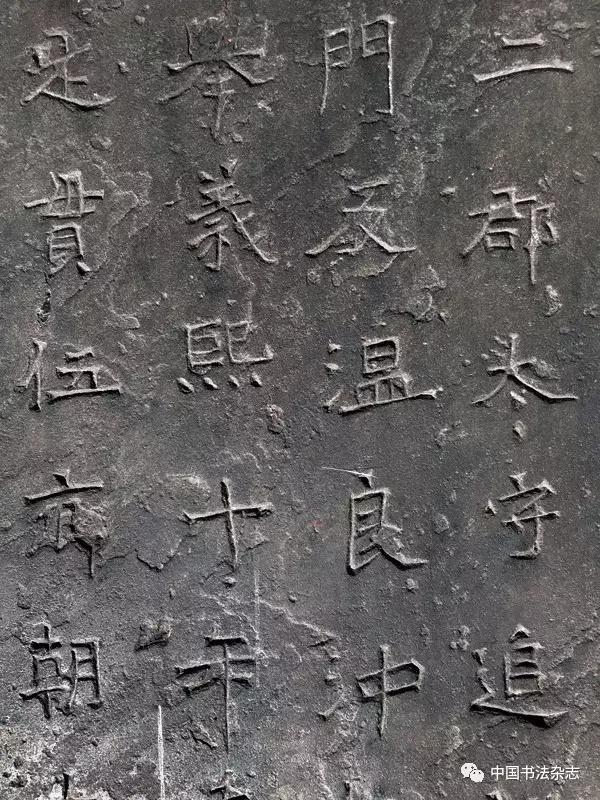 二郡太守追
門友温良沖
舉義熙十年
是貫伍朝
中国书法杂志